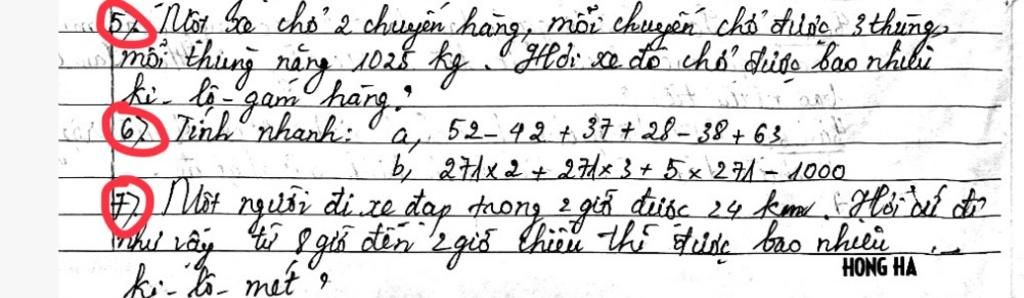 5/. Một xe chở 2 chuyến hàng, mỗi chuyến chở được 3 thùng,
mỗi thùng nặng 1025 kg. Hỏi xe đó chở được bao nhiêu
ki-lô-gam hàng?
6/. Tính nhanh: a, 52 - 42 + 37 + 28 - 38 + 63
b, 271 x 2 + 271 x 3 + 5 x 271 - 1000
7/. Một người đi xe đạp trong 2 giờ được 24 km. Hỏi cứ đi
như vậy từ 8 giờ đến 2 giờ chiều thì được bao nhiêu
HONG HA
ki-lô-mét?